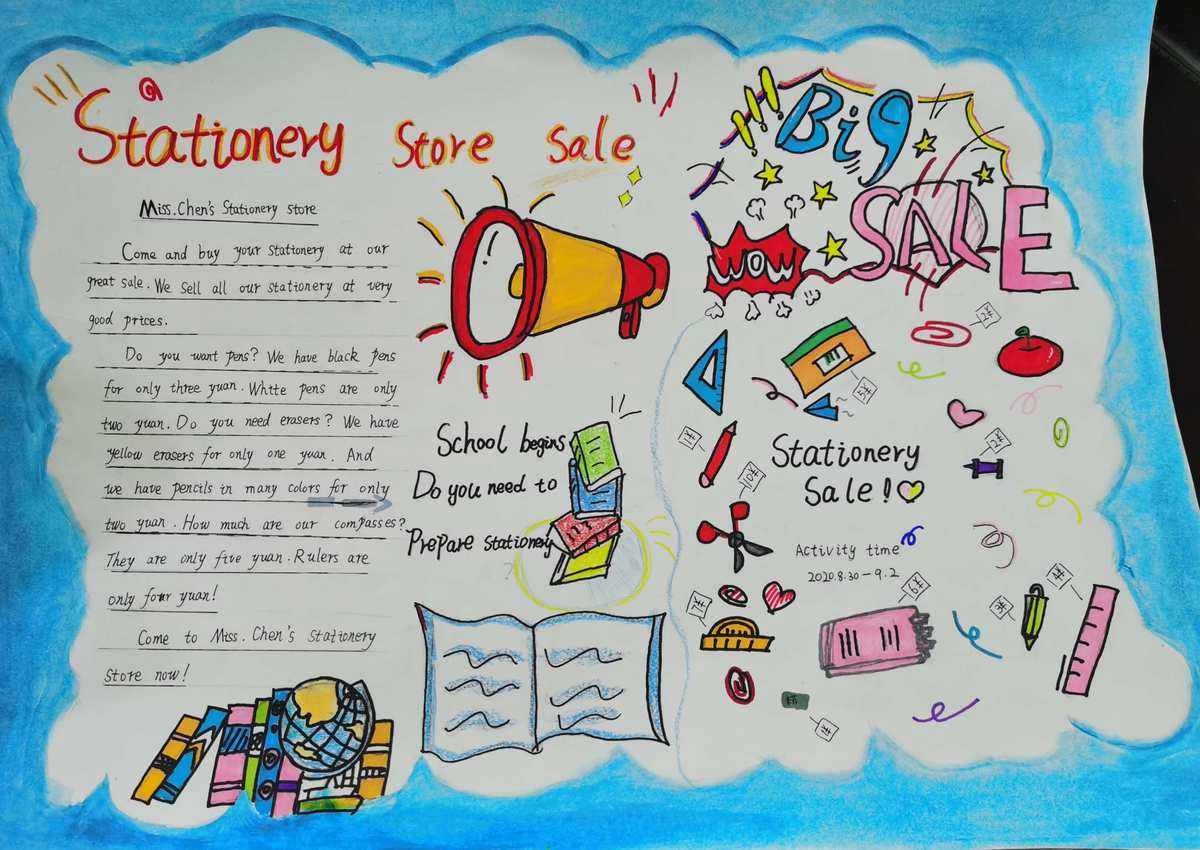 Stationery Store Sale
Miss.Chen's Stationery store
Come and buy your stationery at our
great sale. We sell all our stationery at very
good prices.
Do you want pens? We have black pens
for only three yuan. White pens are only
two yuan. Do you need erasers? We have
yellow erasers for only one yuan. And
we have pencils in many colors for only
two yuan. How much are our compasses?
They are only five yuan. Rulers are
only four yuan!
Come to Miss. Chen's stationery
store now!
School begins
Do you need to
Prepare stationery
!!! Big
SALE
WOW
Stationery
Sale!
Activity time
2020.8.30-9.2